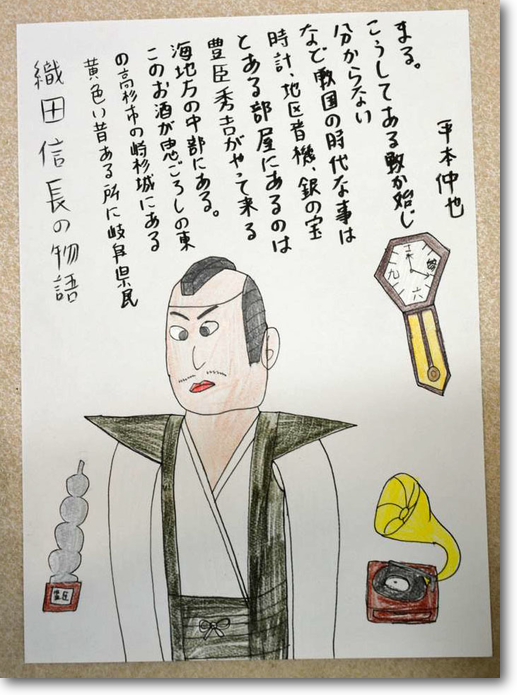 織田信長の物語
黄色い昔ある所に岐阜県民
の高杉市の崎杉城にある
このお酒が忠ごろしの東
海地方の中部にある。
豊臣秀吉がやって来る
とある部屋にあるのは
時計、地区音機、銀の宝
など戦国の時代な事は
分からない
こうしてある戦が始じ
まる。
平本仲也
九
六